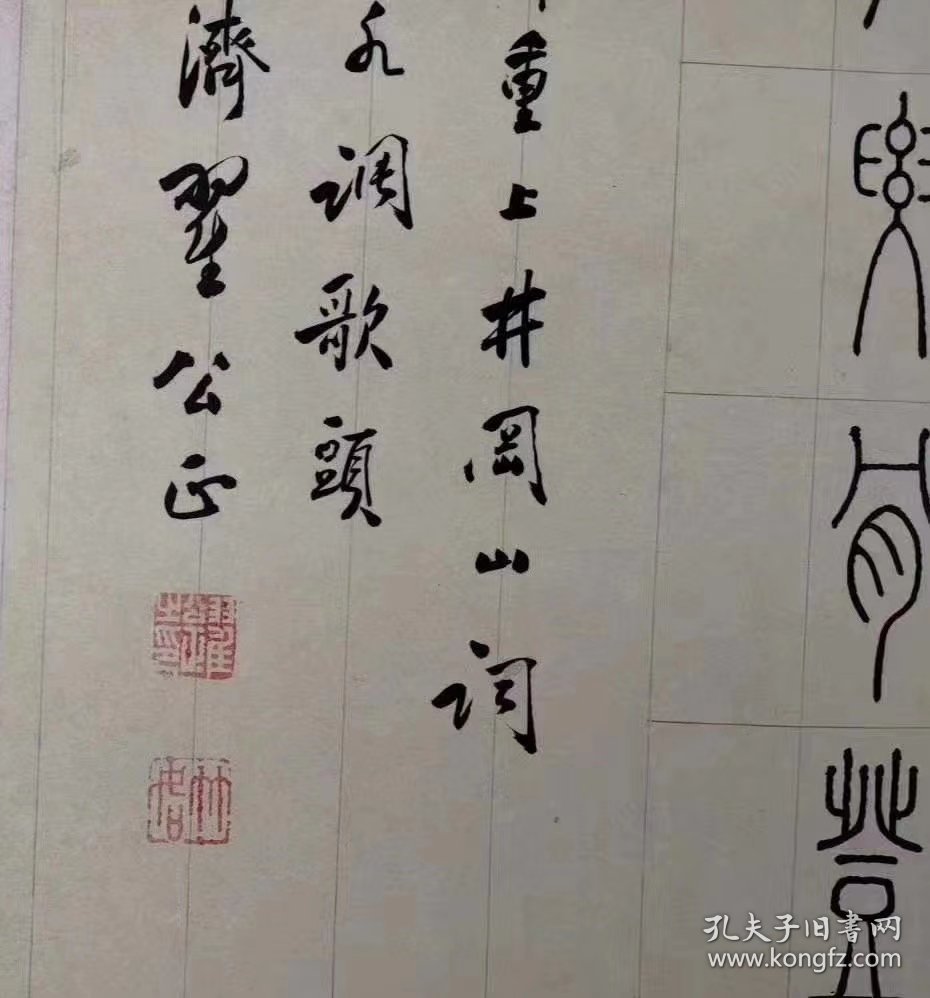 要肯登
重上井岡山词
水调歌頭
濟翟公正
孔夫子旧书网
www.kongfz.com